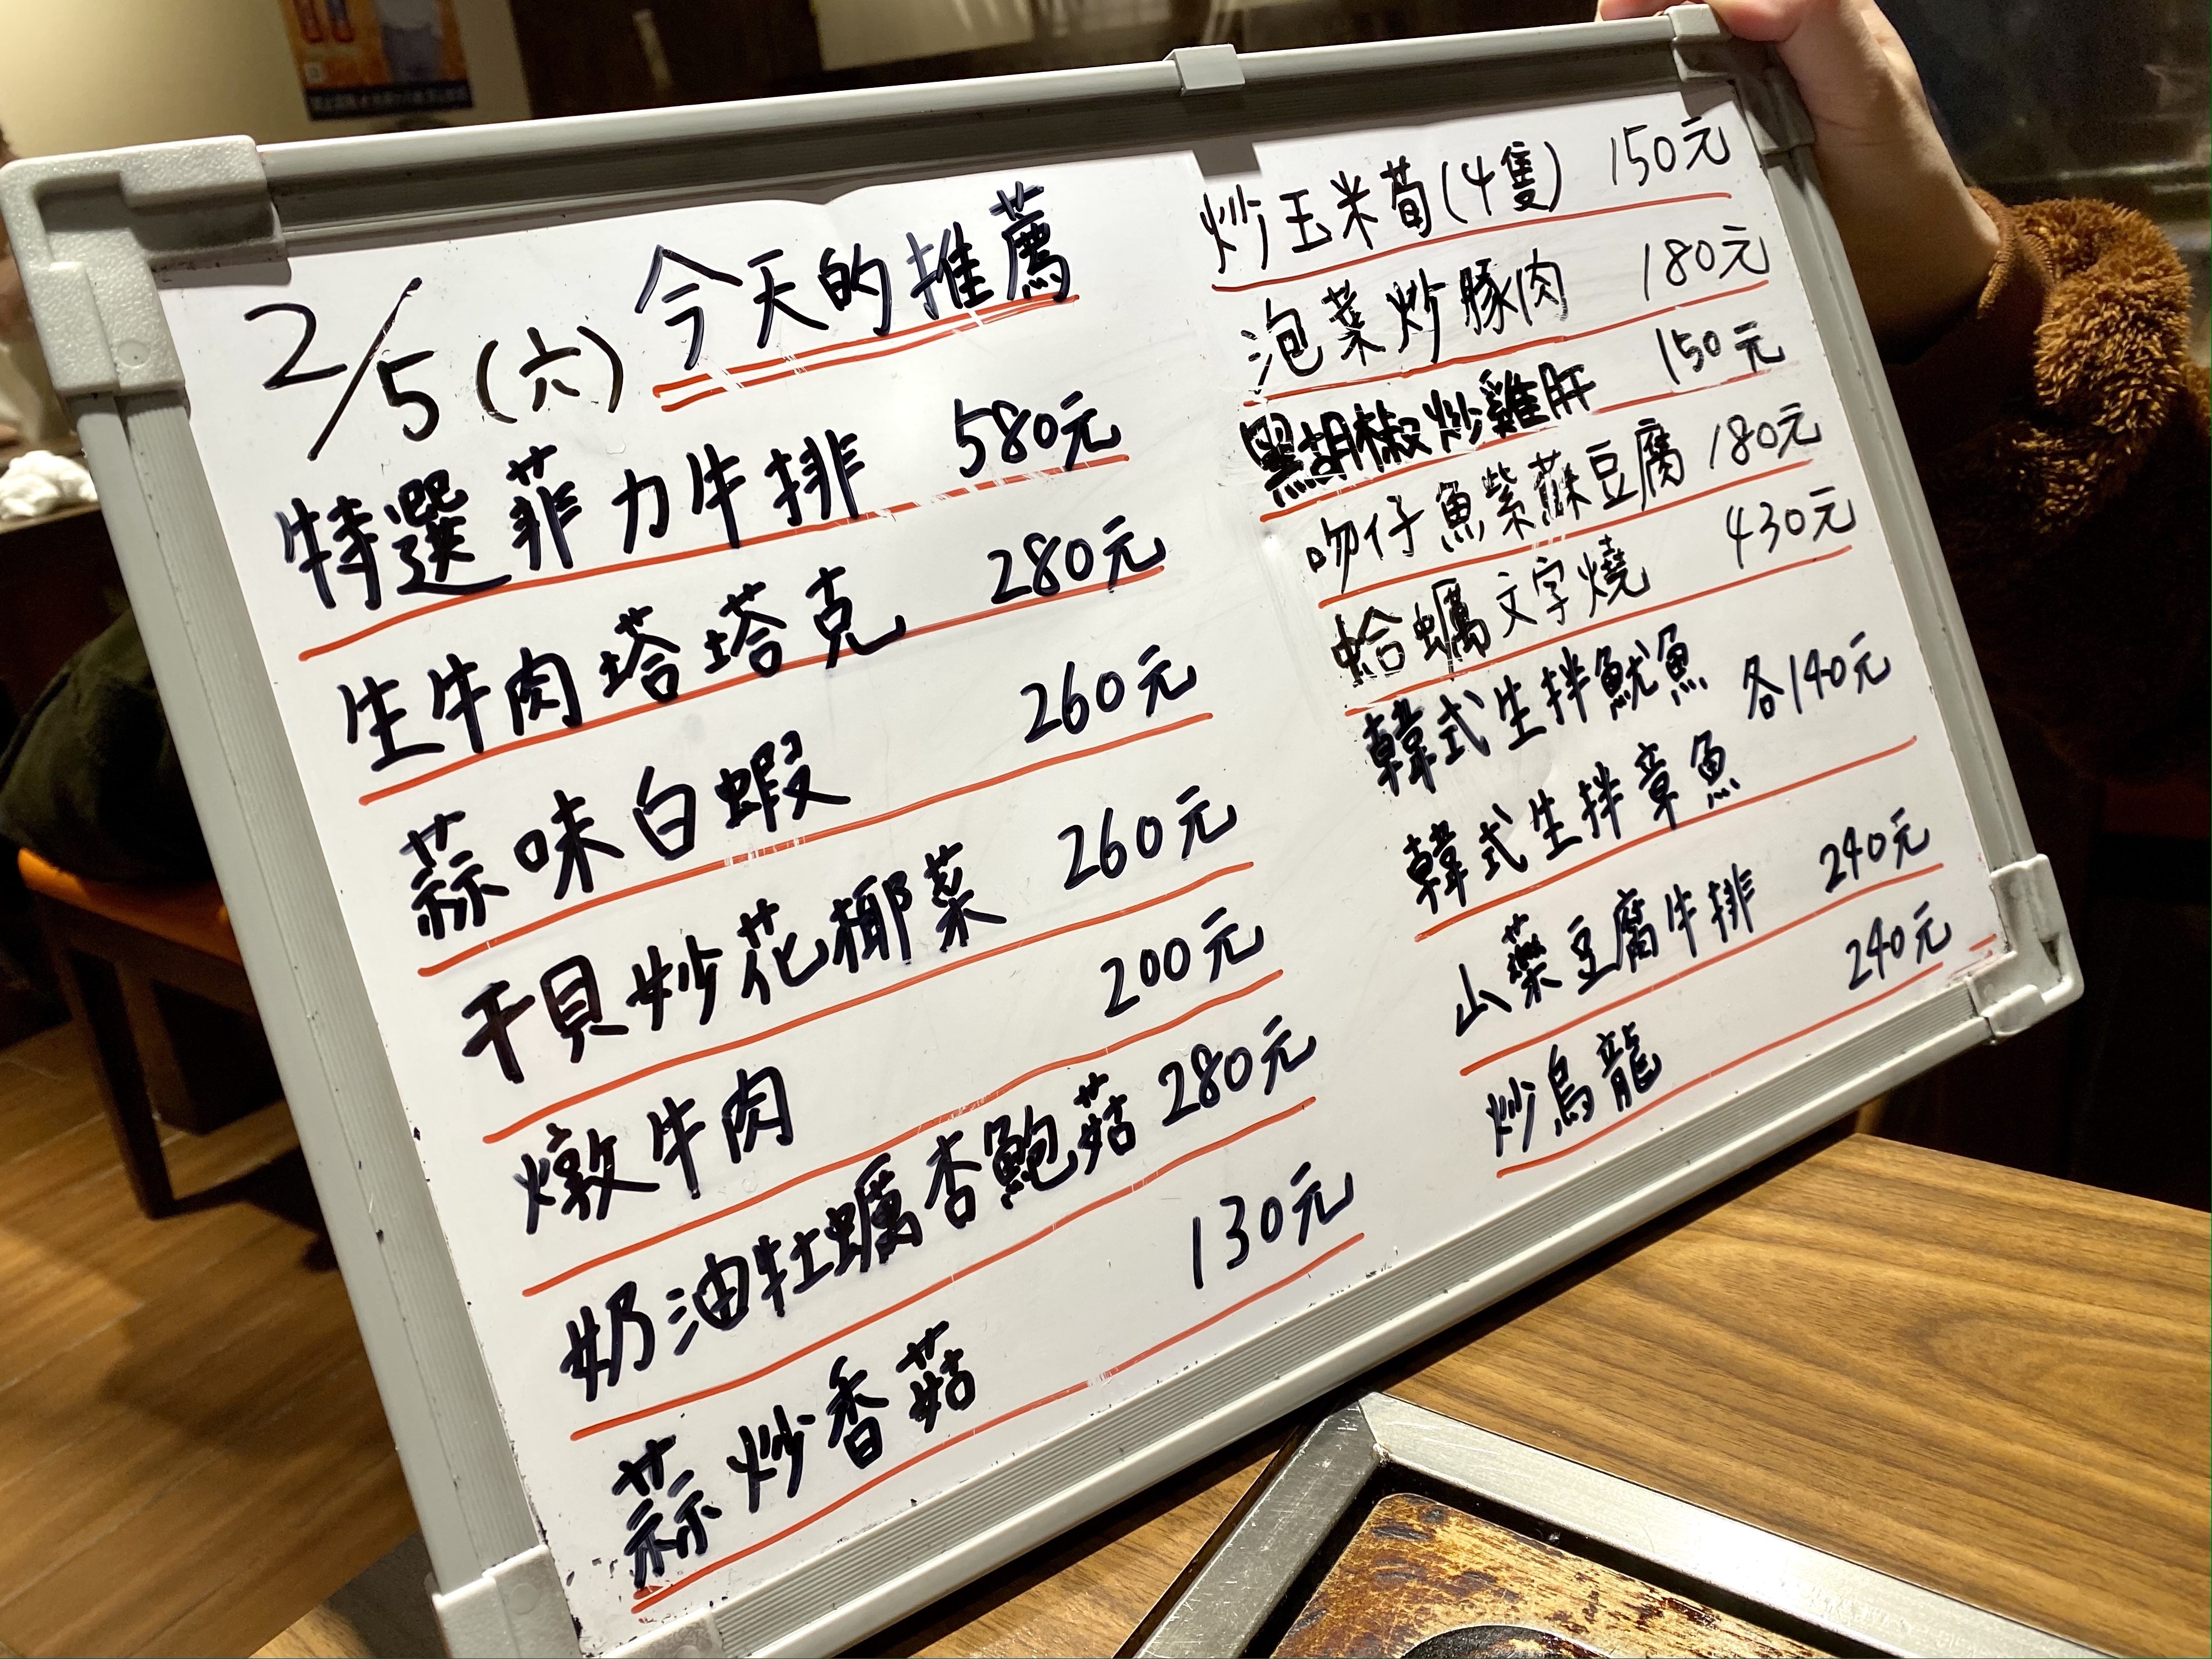 2/5(六) 今天的推薦
特選菲力牛排 580元
生牛肉塔塔克 280元
蒜味白蝦 260元
干貝炒花椰菜 260元
燉牛肉 200元
奶油牡蠣杏鮑菇 280元
蒜炒香菇 130元
炒玉米荀(4隻) 150元
泡菜炒豚肉 180元
黑胡椒炒雞肝 150元
吻仔魚紫蘇豆腐 180元
蛤蠣文字燒 430元
韓式生拌魷魚 各140元
韓式生拌章魚
山藥豆腐牛排 240元
炒烏龍 240元